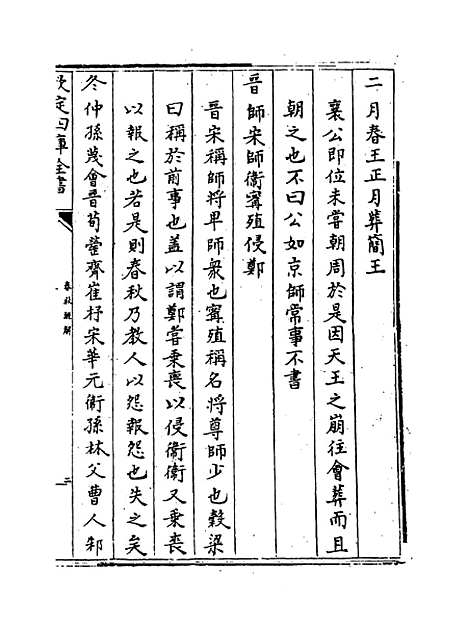 二月春王正月葬簡王
襄公即位未嘗朝周於是因天王之崩往會葬而且
朝之也不曰公如京師常事不書
晉師宋師衞甯殖侵鄭
晉宋稱師將卑師衆也甯殖稱名將尊師少也穀梁
曰稱於前事也盖以謂鄭嘗乗喪以侵衞衞又乗喪
以報之也若是則春秋乃教人以怨報怨也失之矣
冬仲孫蔑會晉荀罃齊崔杼宋華元衞孫林父曹人邾
欽定四庫全書
春秋經解
二